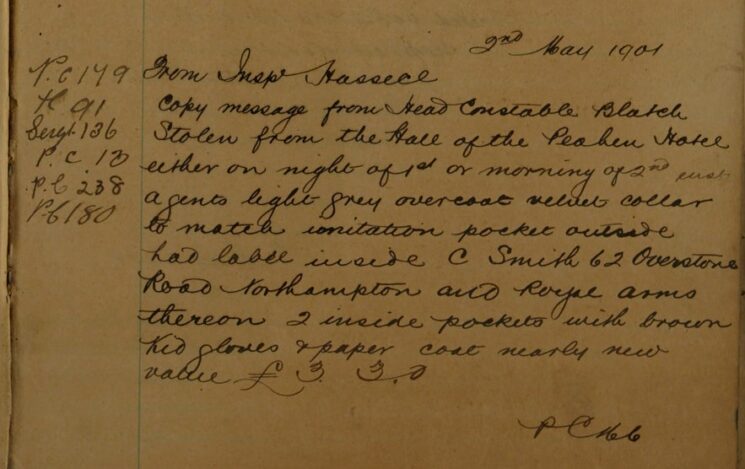 2nd May 1901
P.C 179
H 91
Sergt 136
P.C. 13
P.C 238
PC 180
From Inspr Hassell
Copy message from Head Constable Blatch
Stolen from the Hall of the Peahen Hotel
either on night of 1st or morning of 2nd inst
a gents light grey overcoat velvet collar
to match imitation pocket outside
had label inside C Smith 62 Overstone
Road Northampton and Royal arms
thereon 2 inside pockets with brown
Kid gloves & paper coat nearly new
value £ 3. 3. 0
P C